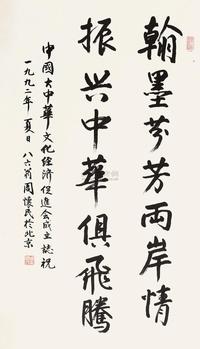 翰墨芬芳両岸情
振兴中華俱飛騰
中國大中華文化经濟促進会成立誌祝
一九九二年夏日八六翁周懷民於北京